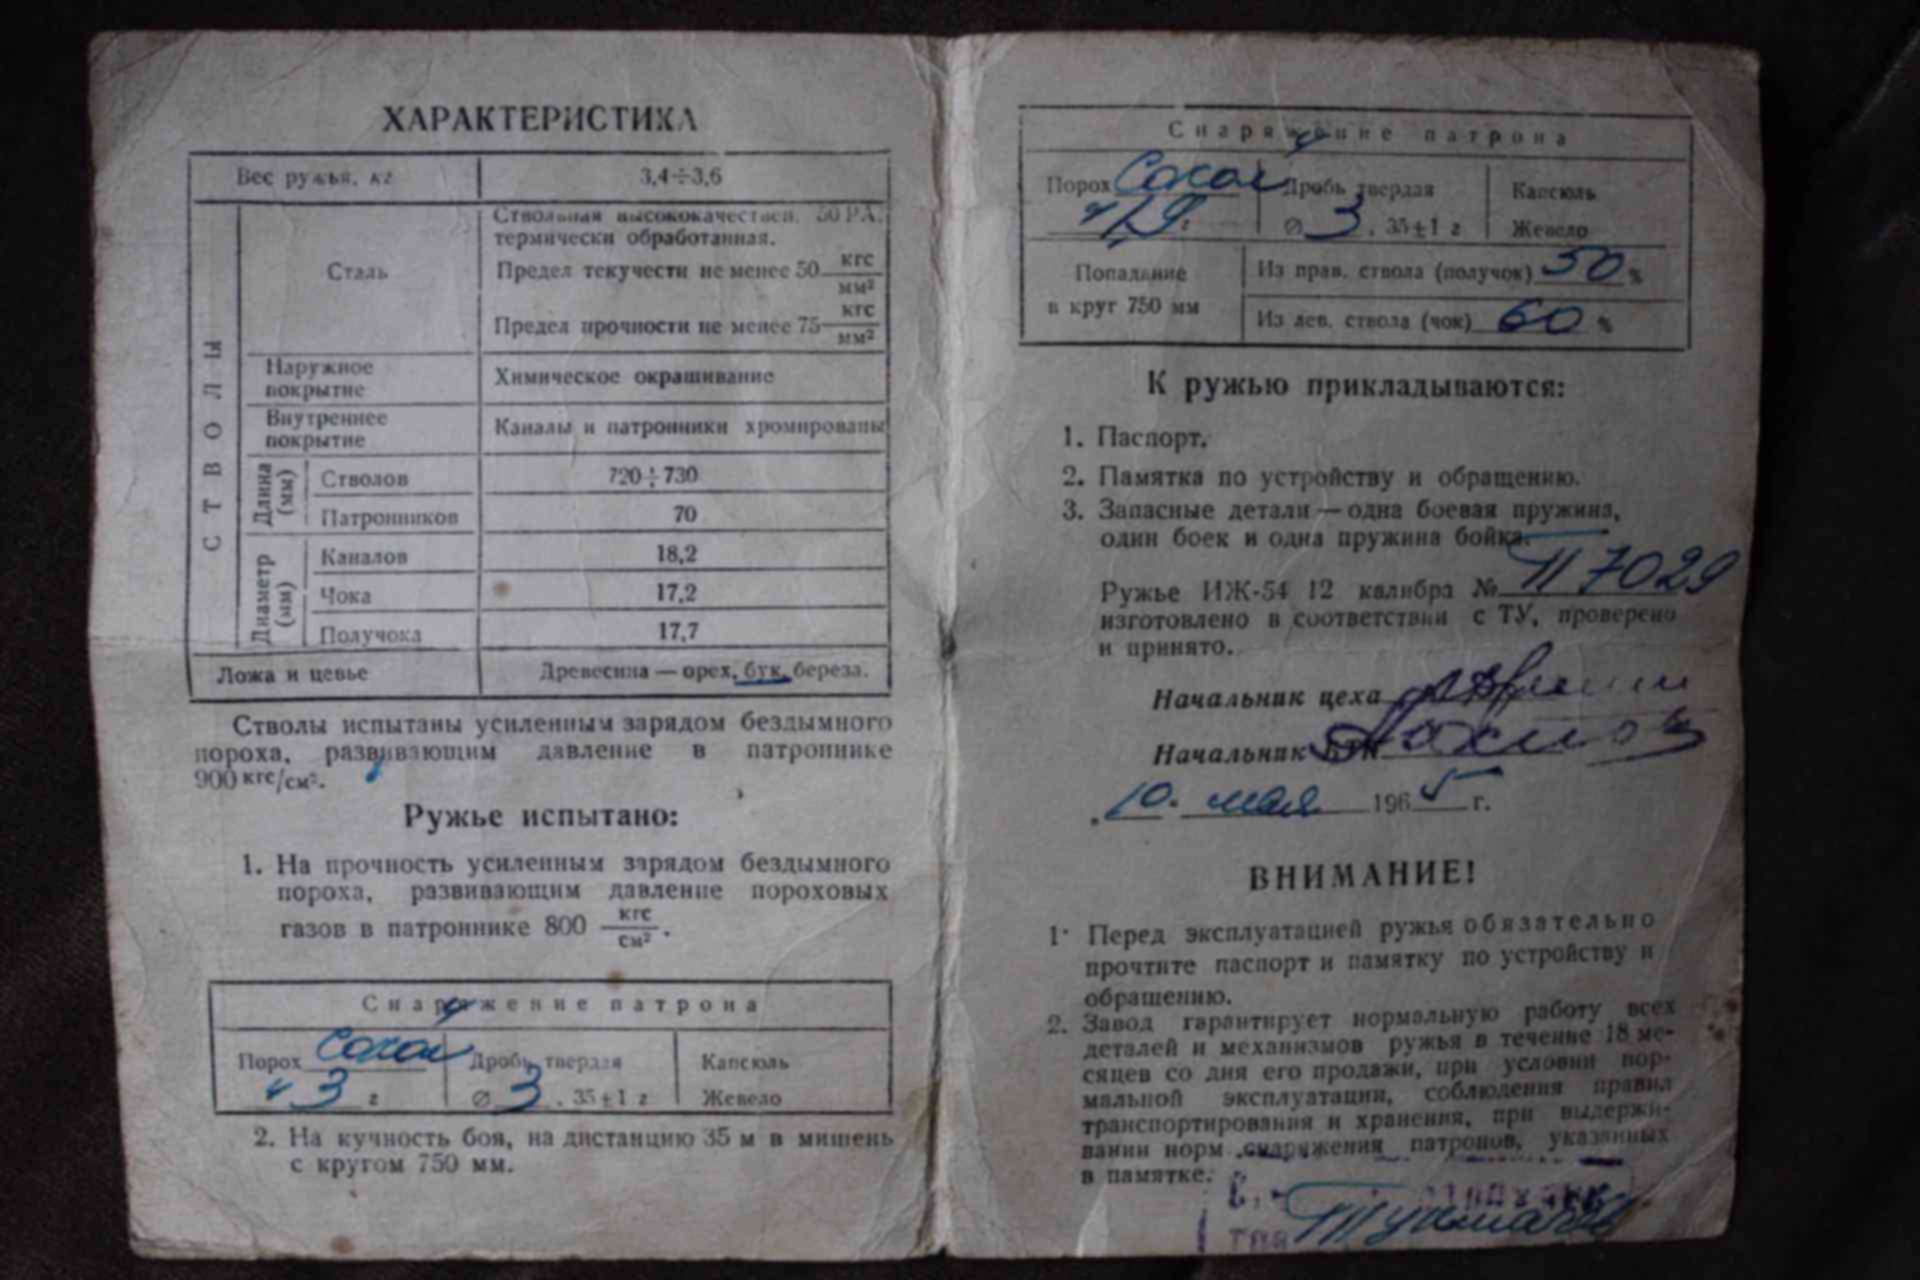 ХАРАКТЕРИСТИКА
Вес ружья, кг 3,4÷3,6
СТВОЛЫ
Сталь
Ствольная высококачествен. 50РА,
термически обработанная.
Предел текучести не менее 50 кгс/мм²
Предел прочности не менее 75 кгс/мм²
Наружное покрытие Химическое окрашивание
Внутреннее покрытие Каналы и патронники хромированы
Длина (мм)
Стволов 720÷730
Патронников 70
Диаметр (мм)
Каналов 18,2
Чока 17,2
Получока 17,7
Ложа и цевье Древесина — орех, бук, береза.
Стволы испытаны усиленным зарядом бездымного
пороха, развивающим давление в патроннике
900 кгс/см².
Ружье испытано:
1. На прочность усиленным зарядом бездымного
пороха, развивающим давление пороховых
газов в патроннике 800 кгс/см².
Снаряжение патрона
Порох Сокол Дробь твердая Капсюль
3 г ∅ 3, 35±1 г Жевело
2. На кучность боя, на дистанцию 35 м в мишень
с кругом 750 мм.
Снаряжение патрона
Порох Сокол Дробь твердая Капсюль
г ∅ 3, 35±1 г Жевело
Попадание
в круг 750 мм
Из прав. ствола (получок) 50 %
Из лев. ствола (чок) 60 %
К ружью прикладываются:
1. Паспорт.
2. Памятка по устройству и обращению.
3. Запасные детали — одна боевая пружина,
один боек и одна пружина бойка.
Ружье ИЖ-54 12 калибра № П7029
изготовлено в соответствии с ТУ, проверено
и принято.
Начальник цеха
Начальник БТК
„10. мая 1965 г.
ВНИМАНИЕ!
1. Перед эксплуатацией ружья обязательно
прочтите паспорт и памятку по устройству и
обращению.
2. Завод гарантирует нормальную работу всех
деталей и механизмов ружья в течение 18 ме-
сяцев со дня его продажи, при условии нор-
мальной эксплуатации, соблюдения правил
транспортирования и хранения, при выдержи-
вании норм снаряжения патронов, указанных
в памятке.